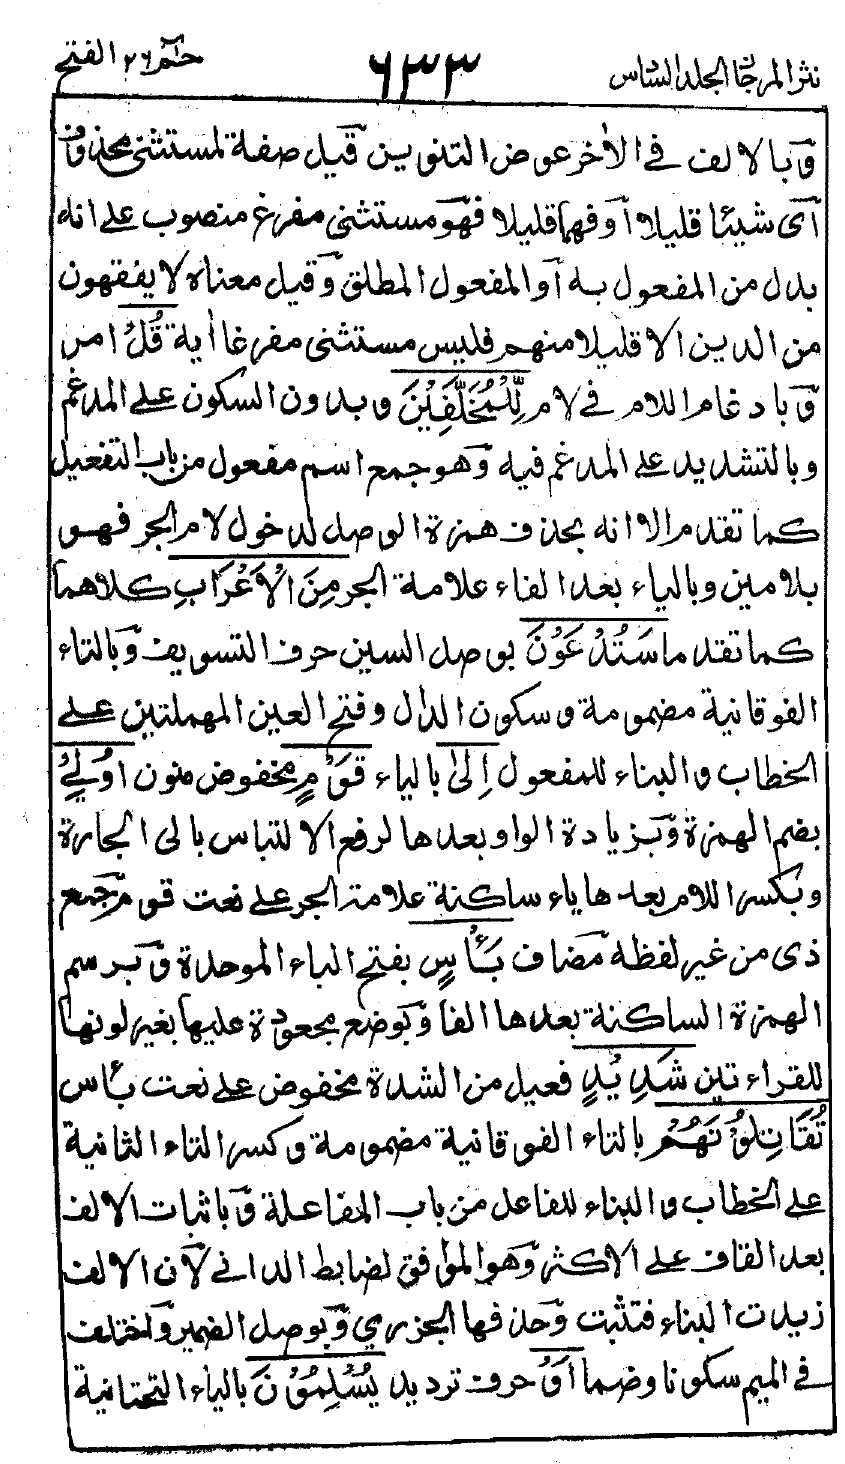 نثر المرجان الجلد السادس ٦٣٣ حٰم ٢٦ الفتح
وبالالف في الاٰخر عوض التنوين قيل صفة لمستثنى محذوف
اى شيئا قليلا او فهما قليلا فهو مستثنى مفرغ منصوب على انه
بدل من المفعول به او المفعول المطلق وقيل معناه لا يفقهون
من الدين الا قليلا منهم فليس مستثنى مفرغا اٰية قُلْ امر
وبادغام اللام في لام لِّلْمُخَلَّفِيْنَ وبدون السكون على المدغم
وبالتشديد على المدغم فيه وهو جمع اسم مفعول من باب التفعيل
كما تقدم الا انه بحذف همزة الوصل لدخول لام الجر فهو
بلامين وبالياء بعد الفاء علامة الجر مِنَ الْاَعْرَابِ كلاهما
كما تقدما سَتُدْعَوْنَ بوصل السين حرف التسويف وبالتاء
الفوقانية مضمومة وسكون الدال وفتح العين المهملتين على
الخطاب والبناء للمفعول اِلىٰ بالياء قَوْمٍ مخفوض منون اُولِيْ
بضم الهمزة وبزيادة الواو بعدها لرفع الالتباس بالى الجارة
وبكسر اللام بعدها ياء ساكنة علامة الجر على نعت قوم جمع
ذى من غير لفظه مضاف بَاْسٍ بفتح الباء الموحدة وبرسم
الهمزة الساكنة بعدها الفا وبوضع مجعودة عليها بغير لونها
للقراءتين شَدِيْدٍ فعيل من الشدة مخفوض على نعت بأس
تُقَاتِلُوْنَهُمْ بالتاء الفوقانية مضمومة وكسر التاء الثانية
على الخطاب والبناء للفاعل من باب المفاعلة وباثبات الالف
بعد القاف على الاكثر وهو الموافق لضابط الدانے لان الالف
زيدت البناء فتثبت وحذفها الجزري وبوصل الضمير واختلف
في الميم سكونا وضما اَوْ حرف ترديد يُسْلِمُوْنَ بالياء التحتانية